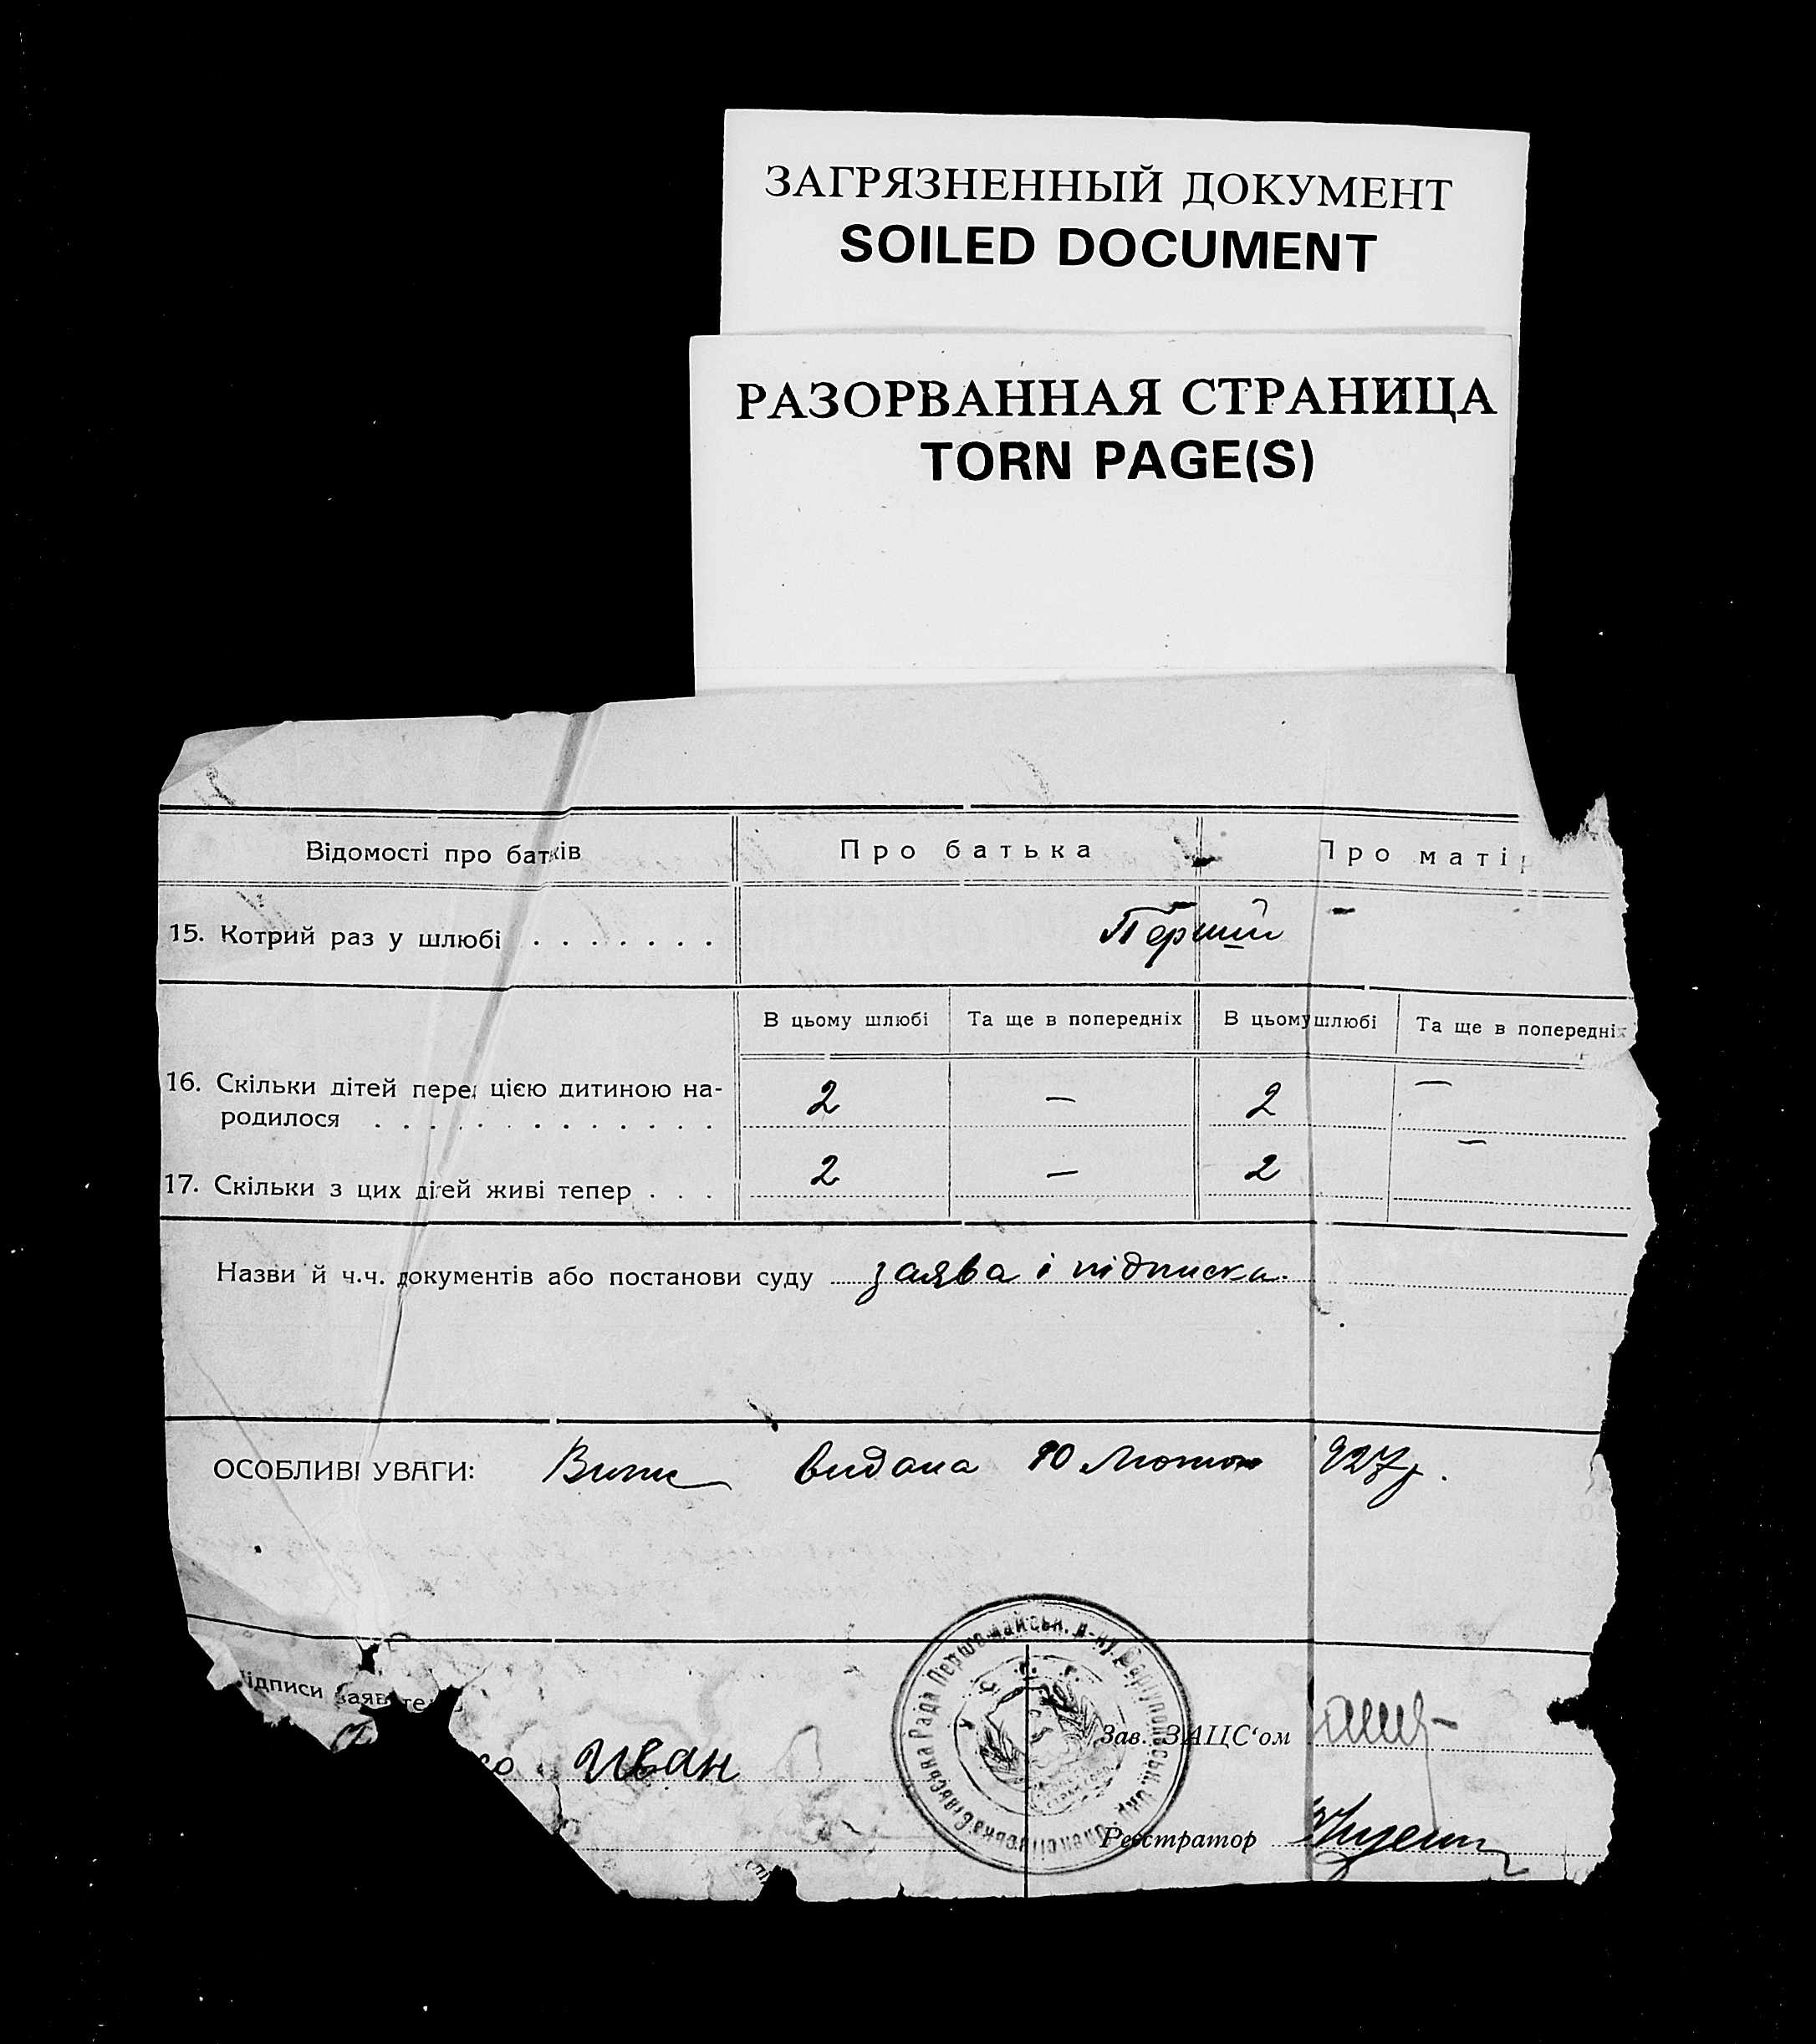 ЗАГРЯЗНЕННЫЙ ДОКУМЕНТ
SOILED DOCUMENT
РАЗОРВАННАЯ СТРАНИЦА
TORN PAGE(S)
Відомості про батьків
Про батька
Про матір
15. Котрий раз у шлюбі . . . . . . .
Перший
В цьому шлюбі
Та ще в попередніх
В цьому шлюбі
Та ще в попередніх
16. Скільки дітей перед цією дитиною на-
родилося . . . . . . . . . . . . . .
2 — 2 —
17. Скільки з цих дітей живі тепер . . .
2 — 2 —
Назви й ч.ч. документів або постанови суду заява і підписка.
ОСОБЛИВІ УВАГИ: видана 10 Лютого 927 р.
Підписи заяв
Іван
Рада Першомайськ. р-ну Маріупольськ. Окр.
У. С. Р. Р.
Зав. ЗАЦС‘ом
Реєстратор